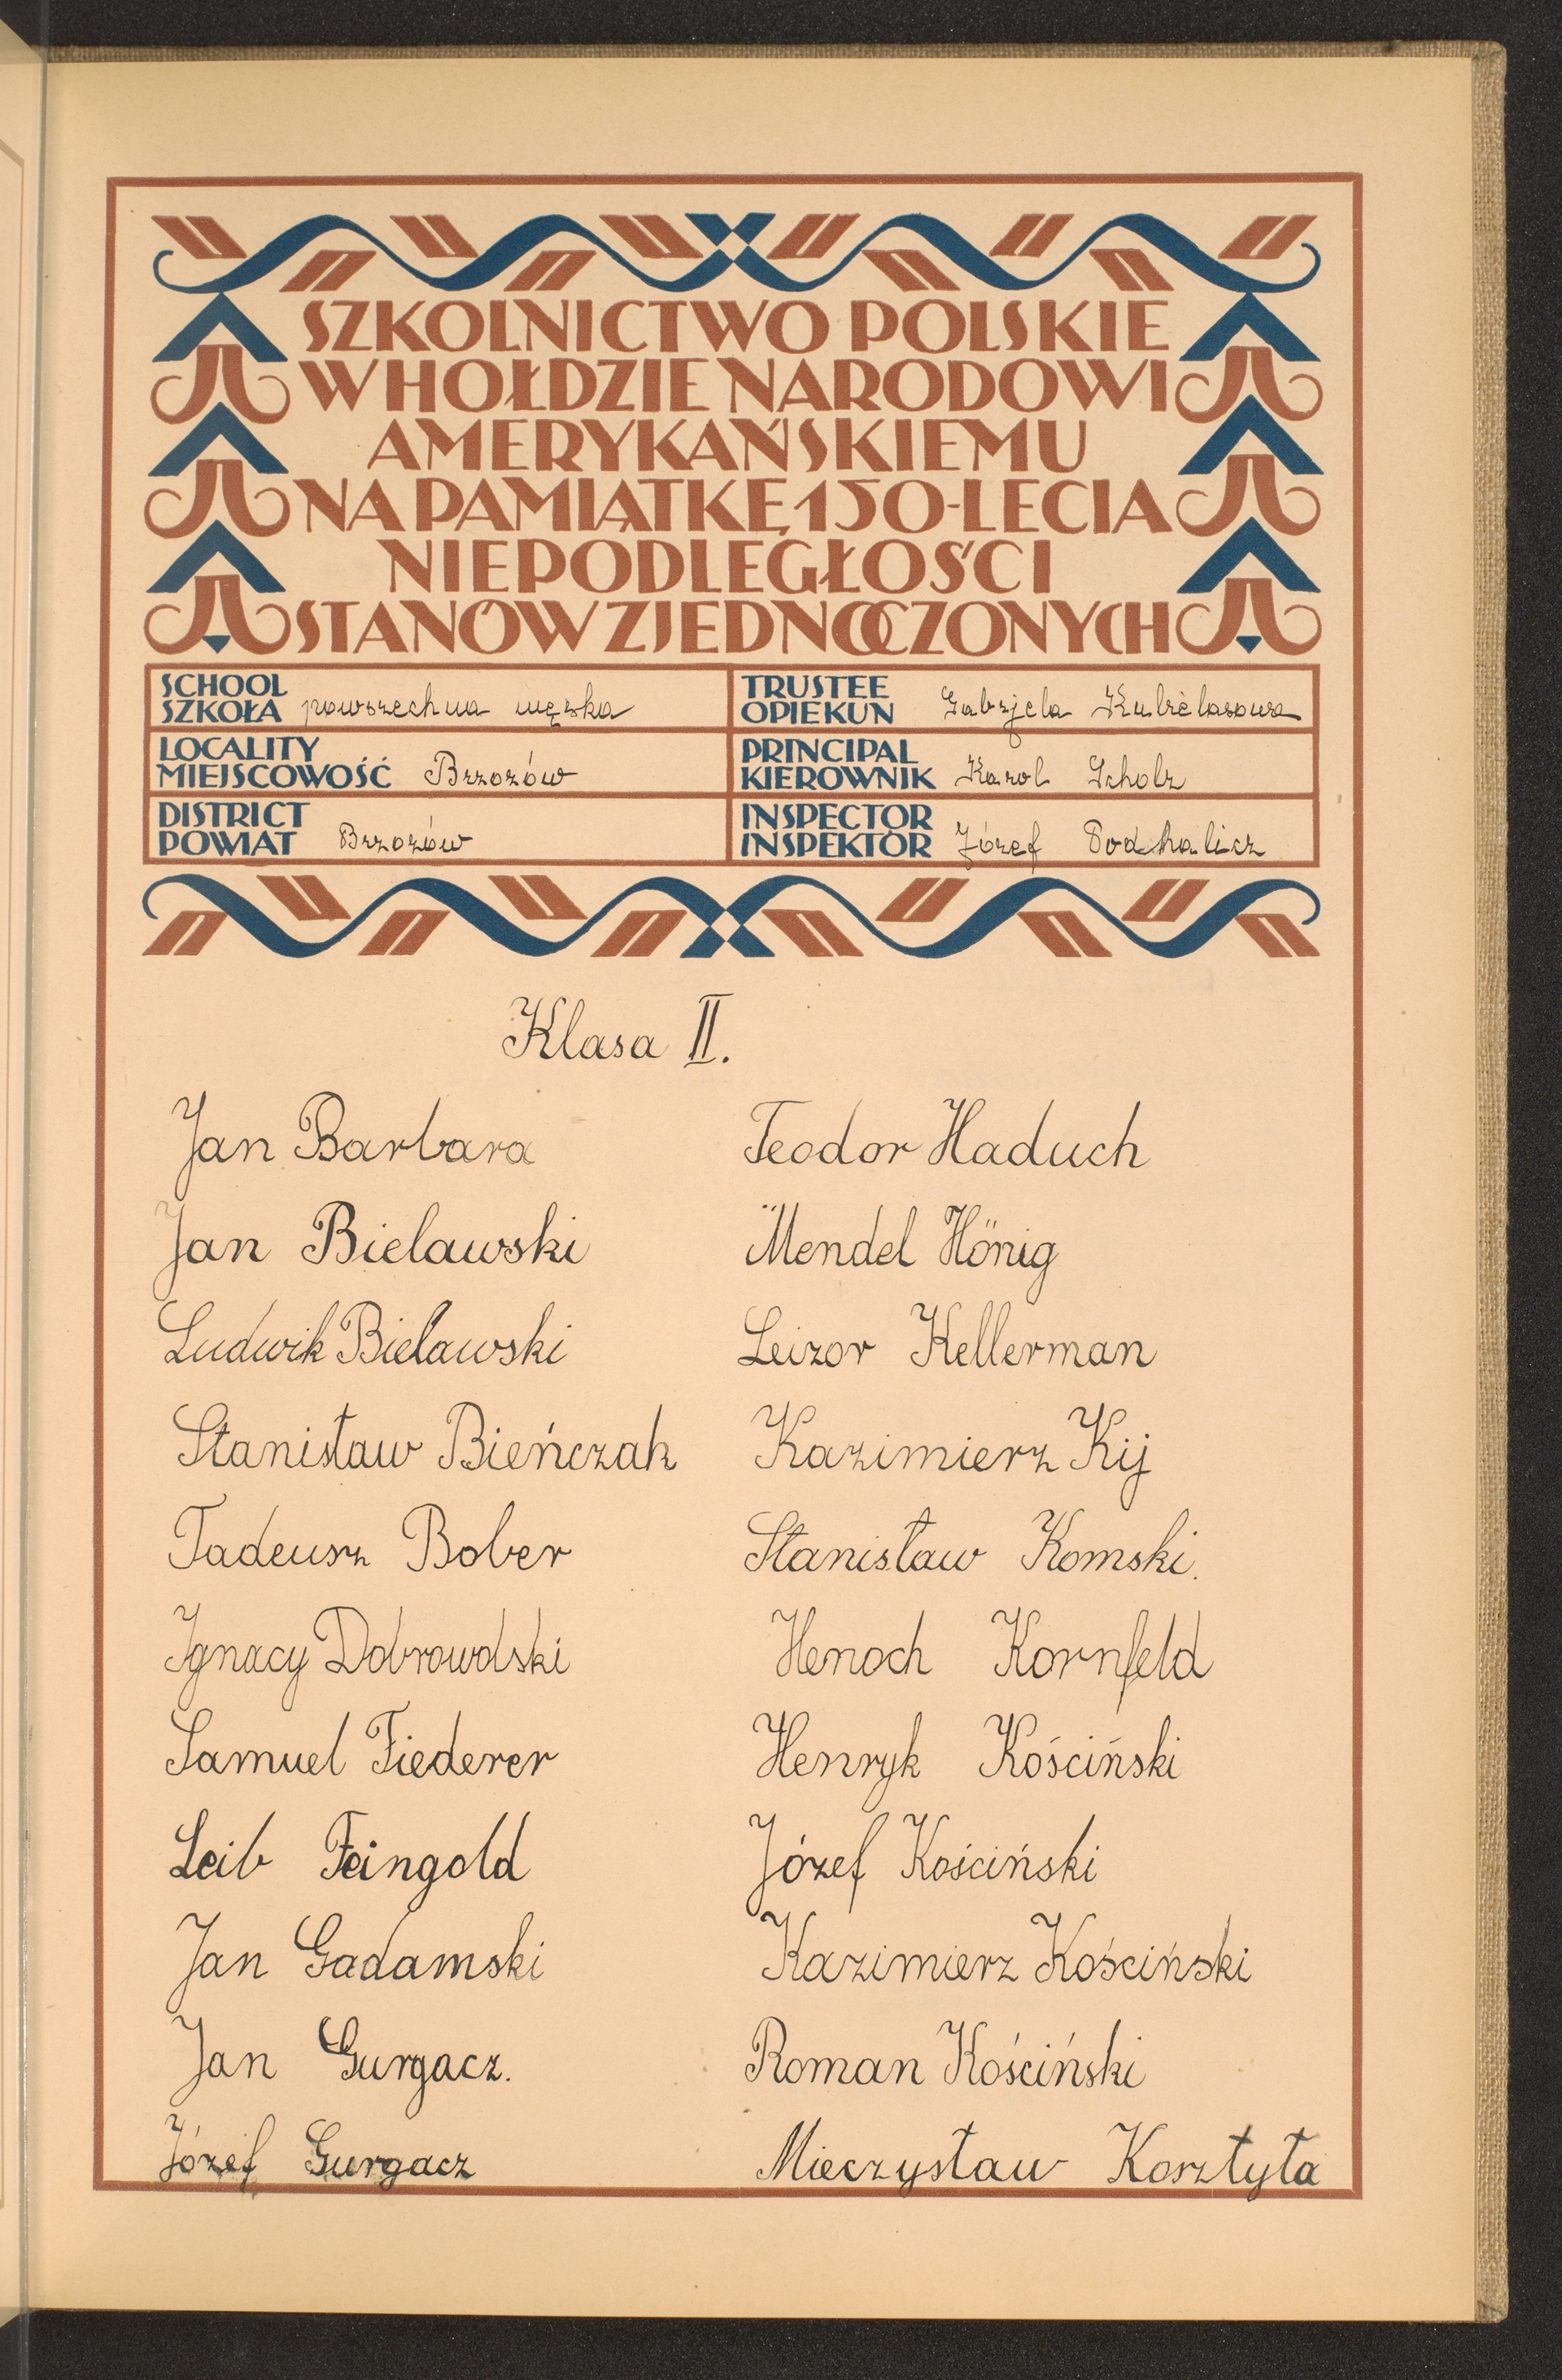 SZKOLNICTWO POLSKIE
W HOŁDZIE NARODOWI
AMERYKAŃSKIEMU
NA PAMIĄTKĘ 150-LECIA
NIEPODLEGŁOŚCI
STANÓW ZJEDNOCZONYCH
SCHOOL
SZKOŁA powszechna męska
LOCALITY
MIEJSCOWOŚĆ Brzozów
DISTRICT
POWIAT Brzozów
TRUSTEE
OPIEKUN Gabrjela
PRINCIPAL
KIEROWNIK Karol Scholz
INSPECTOR
INSPEKTOR Józef Podkalicz
Klasa II.
Jan Barbara
Jan Bielawski
Ludwik Bielawski
Stanisław Bieńczak
Tadeusz Bober
Ignacy Dobrowolski
Samuel Fiederer
Leib Feingold
Jan Gadamski
Jan Gurgacz.
Józef Gurgacz
Teodor Haduch
Mendel Hönig
Leizor Kellerman
Kazimierz Kij
Stanisław Komski.
Henoch Kornfeld
Henryk Kościński
Józef Kościński
Kazimierz Kościński
Roman Kościński
Mieczysław Kosztyła